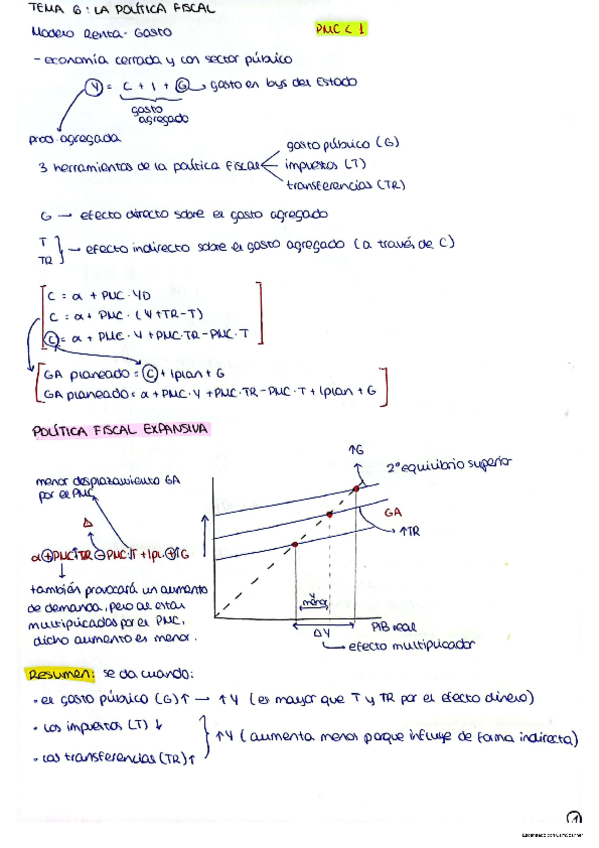 TEMA 6: LA POLÍTICA FISCAL
Modelo Renta-Gasto
PMC < 1
- economía cerrada y con sector público
Y = C + I + G → gasto en bys del Estado
gasto
agregado
prod. agregada
3 herramientas de la política fiscal
gasto público (G)
impuestos (T)
transferencias (TR)
G → efecto directo sobre el gasto agregado
T
TR
→ efecto indirecto sobre el gasto agregado (a través de C)
C = α + PMC · YD
C = α + PMC · (Y+TR-T)
C = α + PMC · Y + PMC·TR - PMC · T
GA planeado = C + Iplan + G
GA planeado = α + PMC · Y + PMC·TR - PMC · T + Iplan + G
POLÍTICA FISCAL EXPANSIVA
↑G
2º equilibrio superior
menor desplazamiento GA
por el PMC
GA
↑TR
Δ
α + PMC·↑TR - PMC·T + Ipl. + ↑G
también provocará un aumento
de demanda, pero al estar
multiplicadas por el PMC,
dicho aumento es menor.
Y
menor
ΔY
PIB real
efecto multiplicador
Resumen: se da cuando:
· el gasto público (G)↑ → ↑Y (es mayor que T y TR por el efecto dinero)
· Los impuestos (T) ↓
· Las transferencias (TR)↑
↑Y (aumenta menos porque influye de forma indirecta)
1
Escaneado con CamScanner